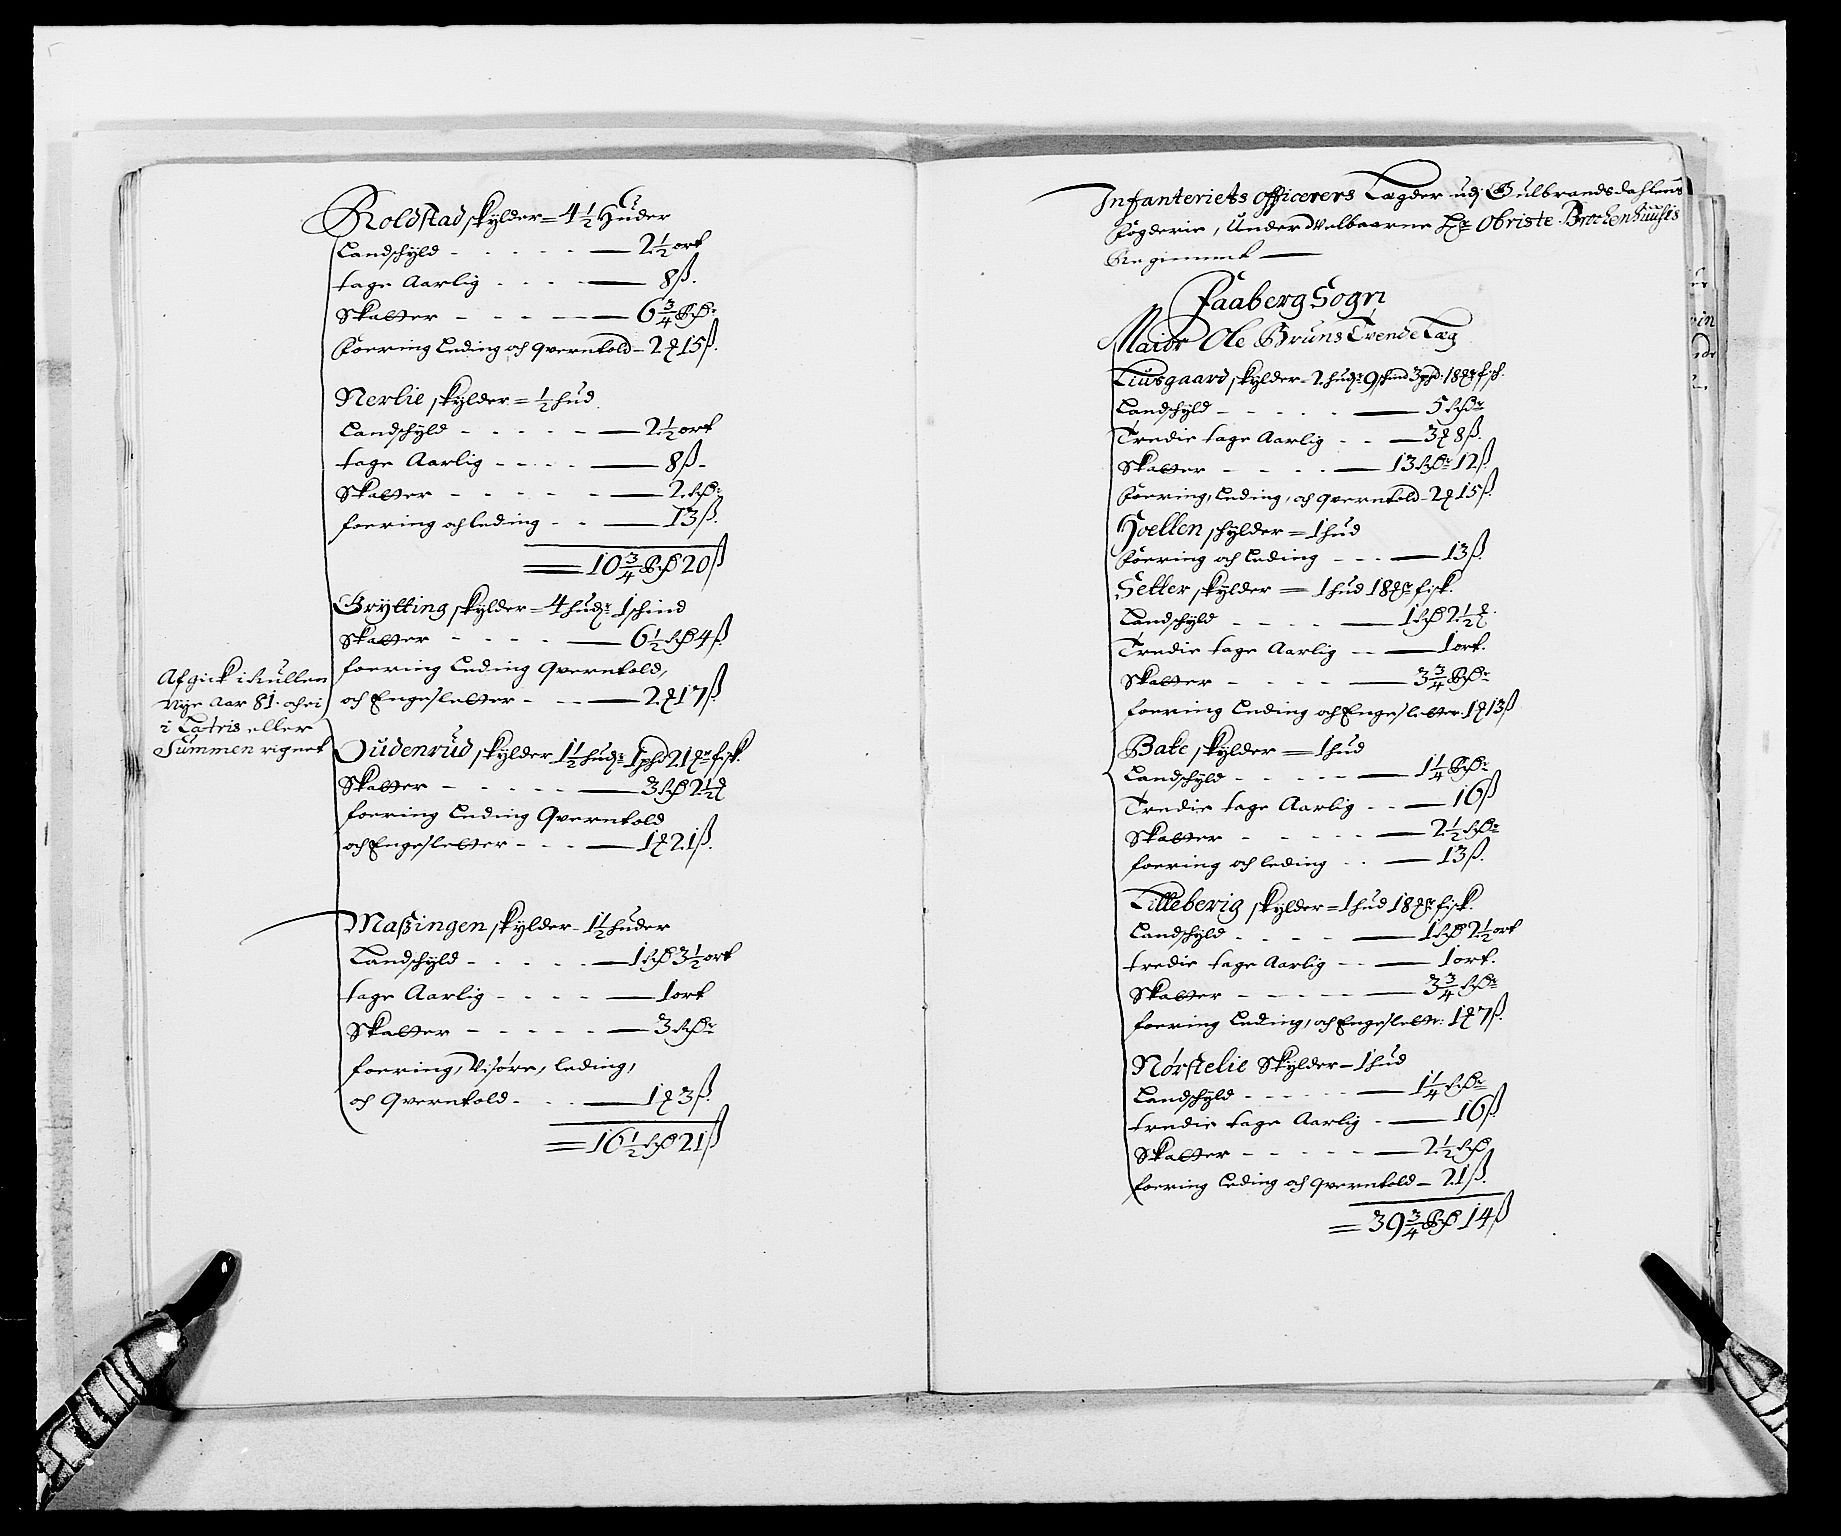 Roldstad skylder = 4 1/2 Huder
Landschyld - - - - - — 2 1/2 ort
tage Aarlig - - - - — 8 ß.
Skatter - - - - - — 6 3/4 Rdr
Foering Leding och Qverntold - 2 ꝗ 15 ß.
Nerlie skylder = 1/2 hud
Landschyld - - - - - — 2 1/2 ort
tage Aarlig - - - - — 8 ß -
Skatter - - - - - — 2 Rdr
foering och leding - - — 13 ß.
= 10 3/4 Rd 20 ß
Grytting skylder = 4 hudr 1 schind
Skatter - - - - — 6 1/2 Rd 4 ß
foering Leding Qverntold,
och Engesletter - - - — 2 ꝗ 17 ß
Afgick i Rullen
Nye Aar 81. och ei
i Latris eller
Summen rignet
Oudenrud skylder 1 1/2 hudr 1 phd 21 ꝗr fisk.
Skatter - - - - - — 3 Rd 2 1/2 ꝗ
foering Leding Qverntold
och Engesletter - - - — 1 ꝗ 21 ß.
Maßingen skylder - 1 1/2 huder
Landschyld - - - - - — 1 Rd 3 1/2 ort
tage Aarlig - - - - — 1 ort
Skatter - - - - - — 3 Rdr
foering, Visøre, leding,
och Qverntold - - - — 1 ꝗ 3 ß.
= 16 1/2 Rd 21 ß
Infanteriets officerers Lægder udj Gulbrandsdahlens
Fogderie, Under Welbaarne Hr Obriste Brochenhuusis
Regiment —
Faaberg Sogn
Maior Ole Bruns Tvende Læg
Liusgaard skylder - 2 hudr 9 schind 3 phd 18 ꝗr fisk.
Landschyld - - - - - — 5 Rdr
Tredie tage Aarlig - - — 3 ꝗ 8 ß.
Skatter - - - - — 13 Rdr 12 ß.
Foering, Leding, och Qverntold - 2 ꝗ 15 ß.
Hoellen schylder = 1 hud
Foering och Leding - - - — 13 ß.
Setter skylder = 1 hud 18 ꝗr fisk.
Landschyld - - - - — 1 Rd 2 1/2 ꝗ.
Tredie tage Aarlig - - — 1 ort.
Skatter - - - - - — 3 3/4 Rdr
foering Leding och Engesletter. 1 ꝗ 13 ß
Bake skylder = 1 hud
Landschyld - - - - - — 1 1/4 Rdr
Tredie tage Aarlig - - — 16 ß
Skatter - - - - - — 2 1/2 Rdr
foering och leding - - — 13 ß.
Lilleberig skylder = 1 hud 18 ꝗr fisk.
Landschyld - - - - - — 1 Rd 2 1/2 ort
tredie tage Aarlig - - — 1 ort.
Skatter - - - - - — 3 3/4 Rdr
foering Leding, och Engeslett: 1 ꝗ 7 ß.
Nørstelie Skylder - 1 hud
Landschyld - - - - - — 1 1/4 Rdr
tredie tage Aarlig - — 16 ß
Skatter - - - - - — 2 1/2 Rd
foering Leding och Qverntold - 21 ß.
= 39 3/4 Rd 14 ß